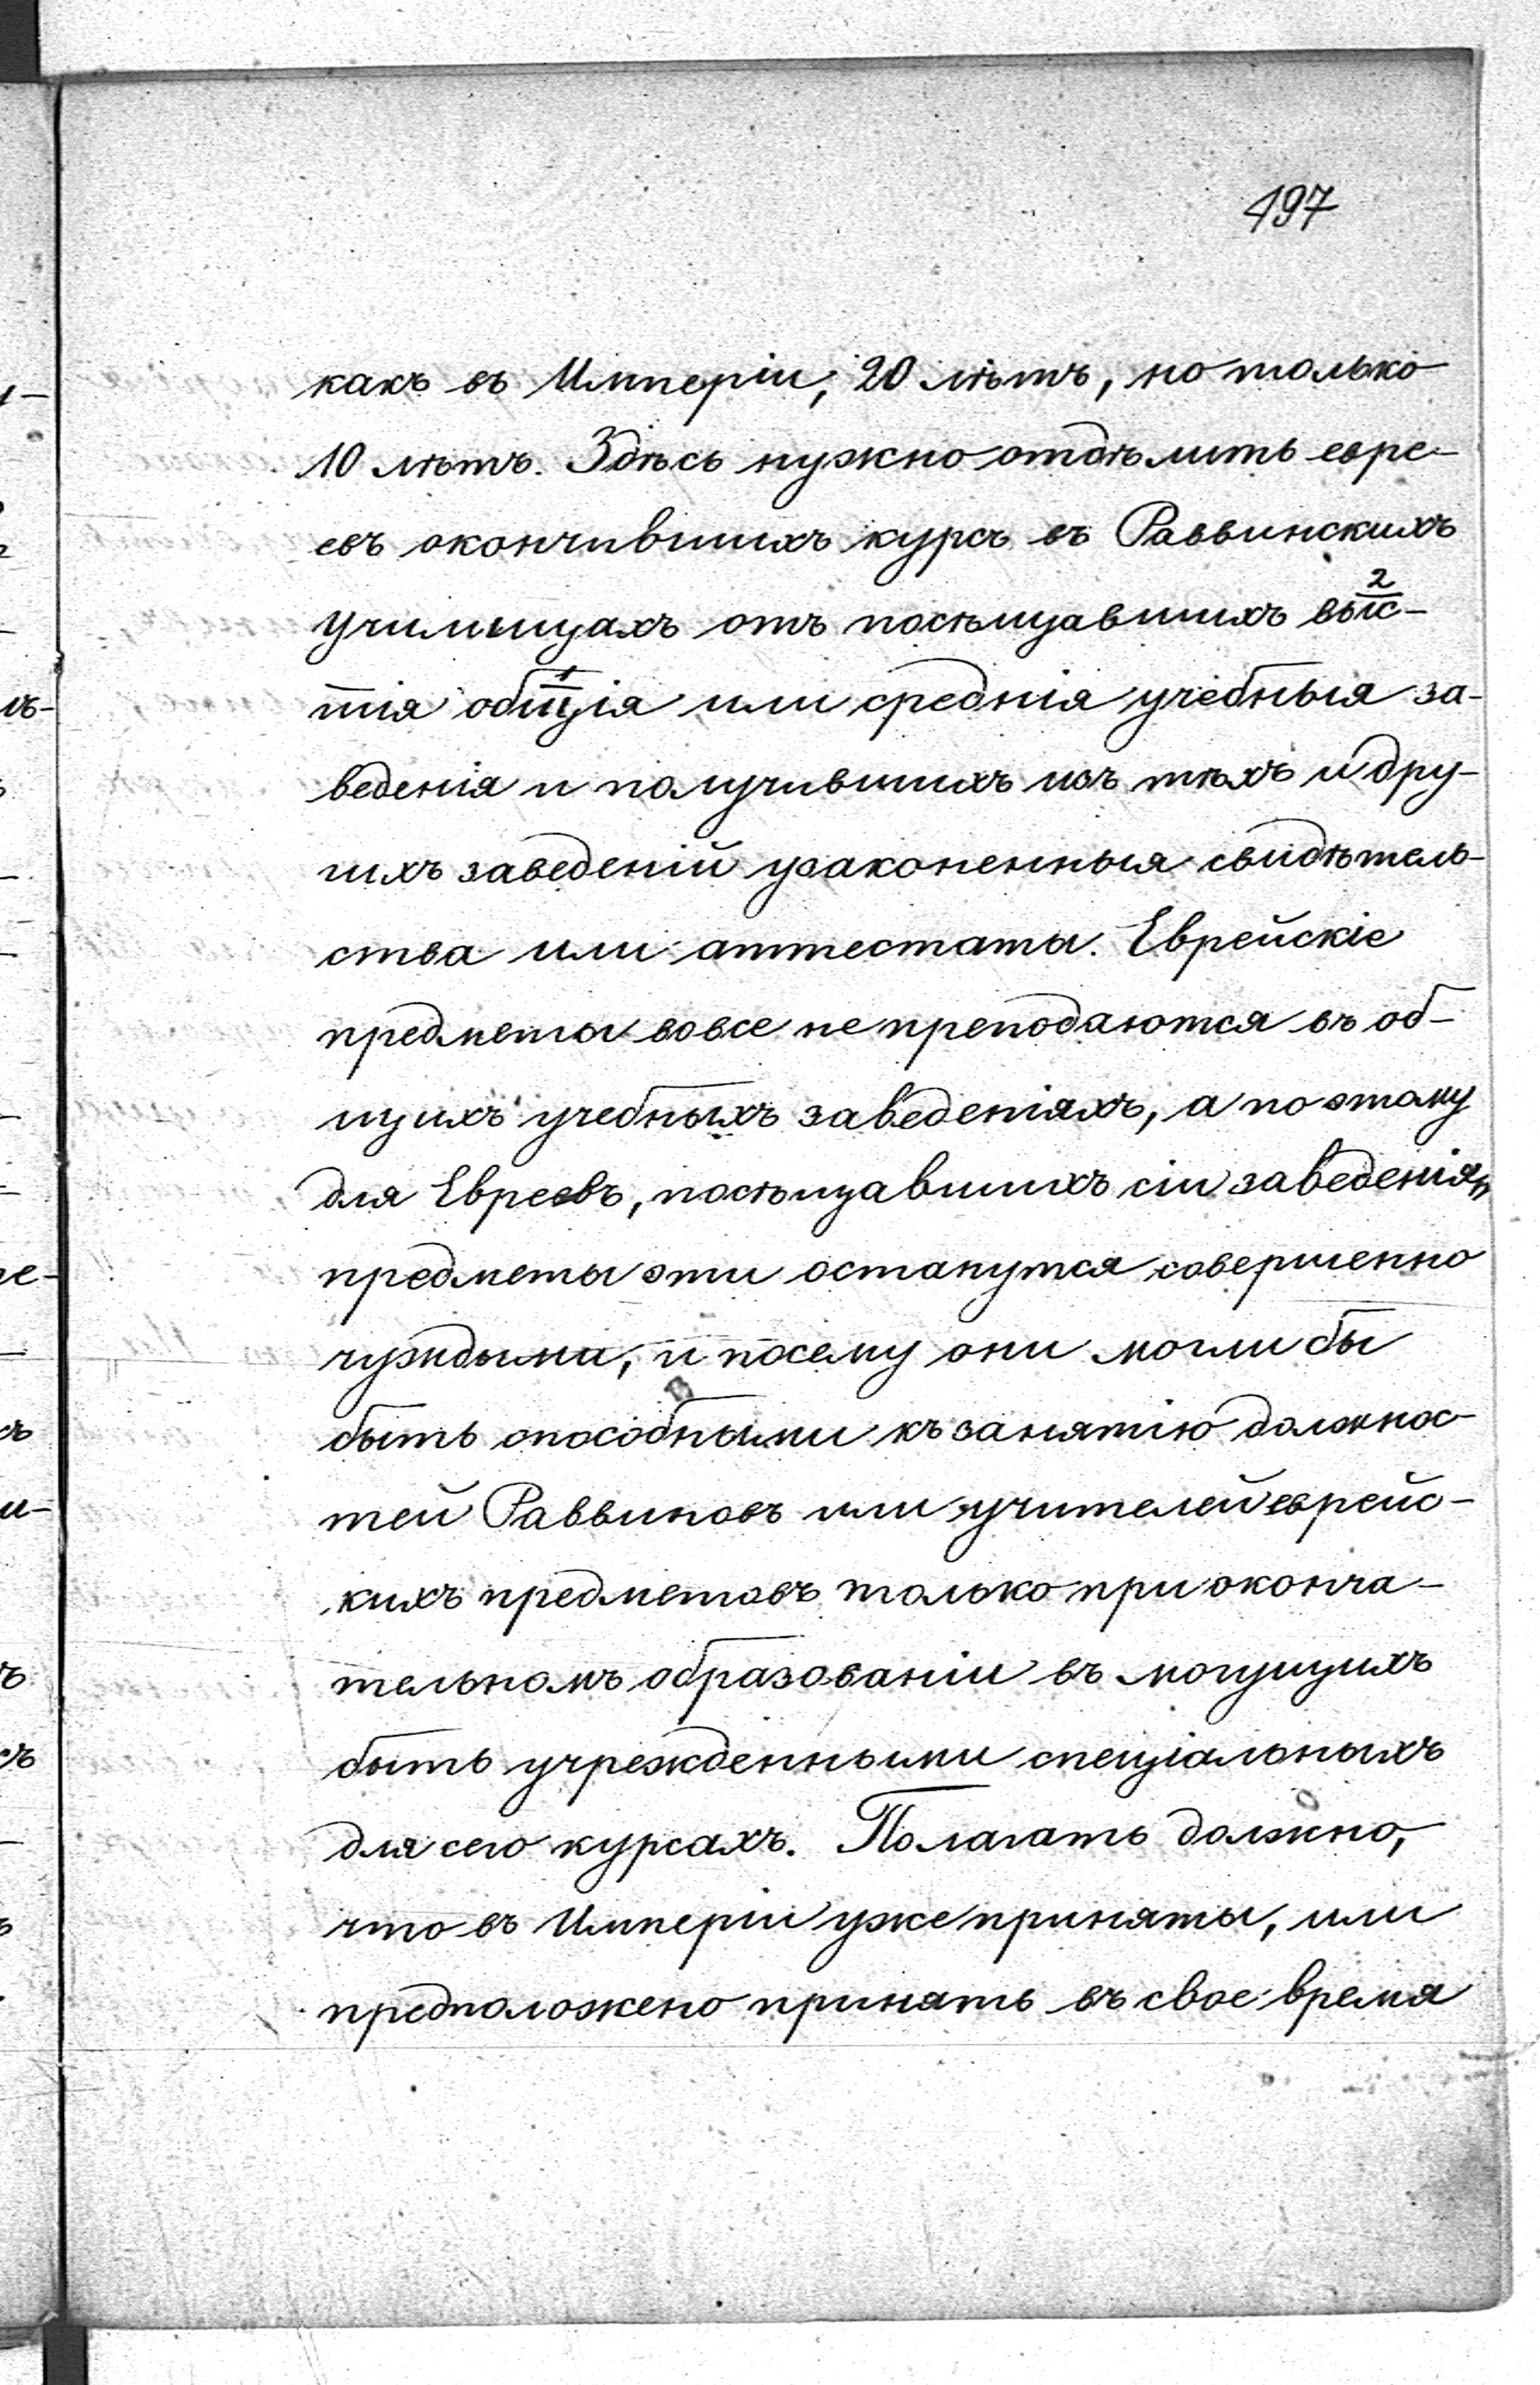 497
какъ въ Имперіи, 20 лѣтъ, но только
10 лѣтъ. Здѣсь нужно отдѣлить евре-
евъ окончившихъ курсъ въ Раввинскихъ
училищахъ отъ посѣщавшихъ выс-
2
шія общія или среднія учебныя за-
1
веденія и получившихъ изъ тѣхъ и дру-
гихъ заведеній узаконенныя свидѣтель-
ства или аттестаты. Еврейскіе
предметы вовсе не преподаются въ об-
щихъ учебныхъ заведеніяхъ, а по этому
для Евреевъ, посѣщавшихъ сіи заведенія,
предметы эти останутся совершенно
чуждыми, и посему они могли бы
быть способными къ занятію должнос-
тей Раввиновъ или учителей еврейс-
кихъ предметовъ только при оконча-
тельномъ образованіи въ могущихъ
быть учрежденными спеціальныхъ
для сего курсахъ. Полагать должно,
что въ Имперіи уже приняты, или
предположено принять въ свое время